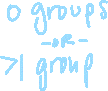 0 groups
-OR-
>1 group